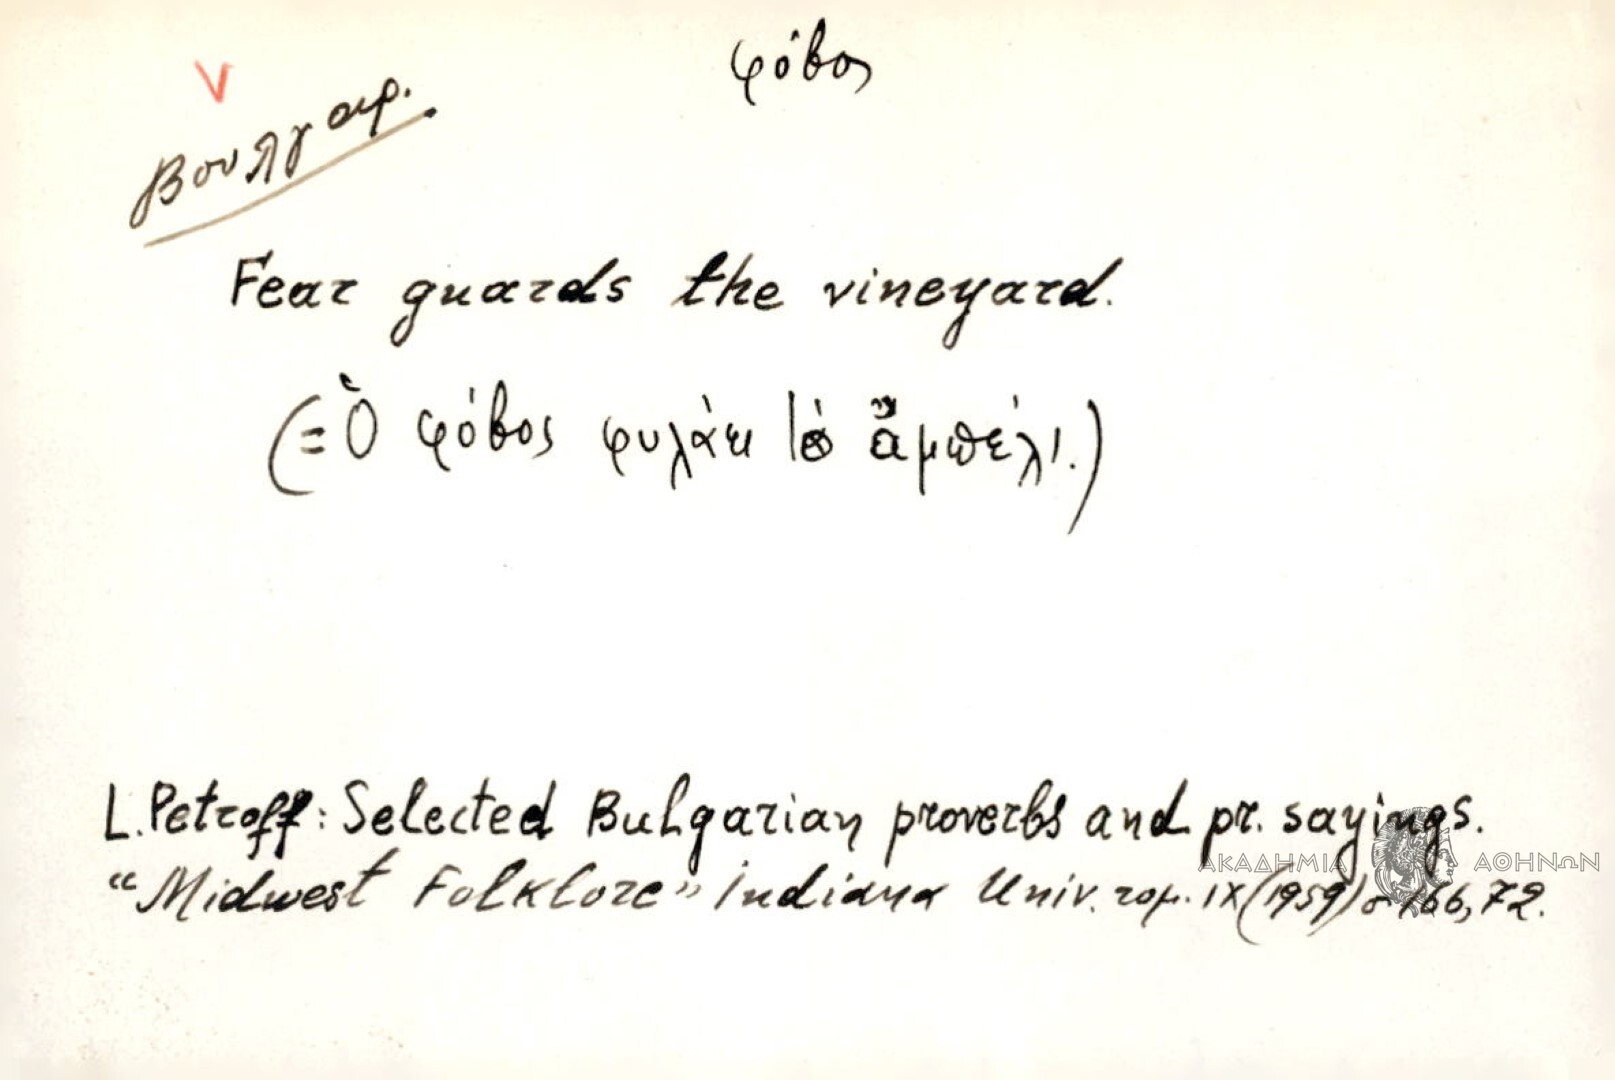 φόβος
V
Βουλγαρ.
Fear guards the vineyard.
(= Ὁ φόβος φυλάει τὸ ἀμπέλι.)
L. Petroff: Selected Bulgarian proverbs and pr. sayings.
"Midwest Folklore" Indiana Univ. τομ. IX (1959) σ 166, 72.
ΑΚΑΔΗΜΙΑ ΑΘΗΝΩΝ